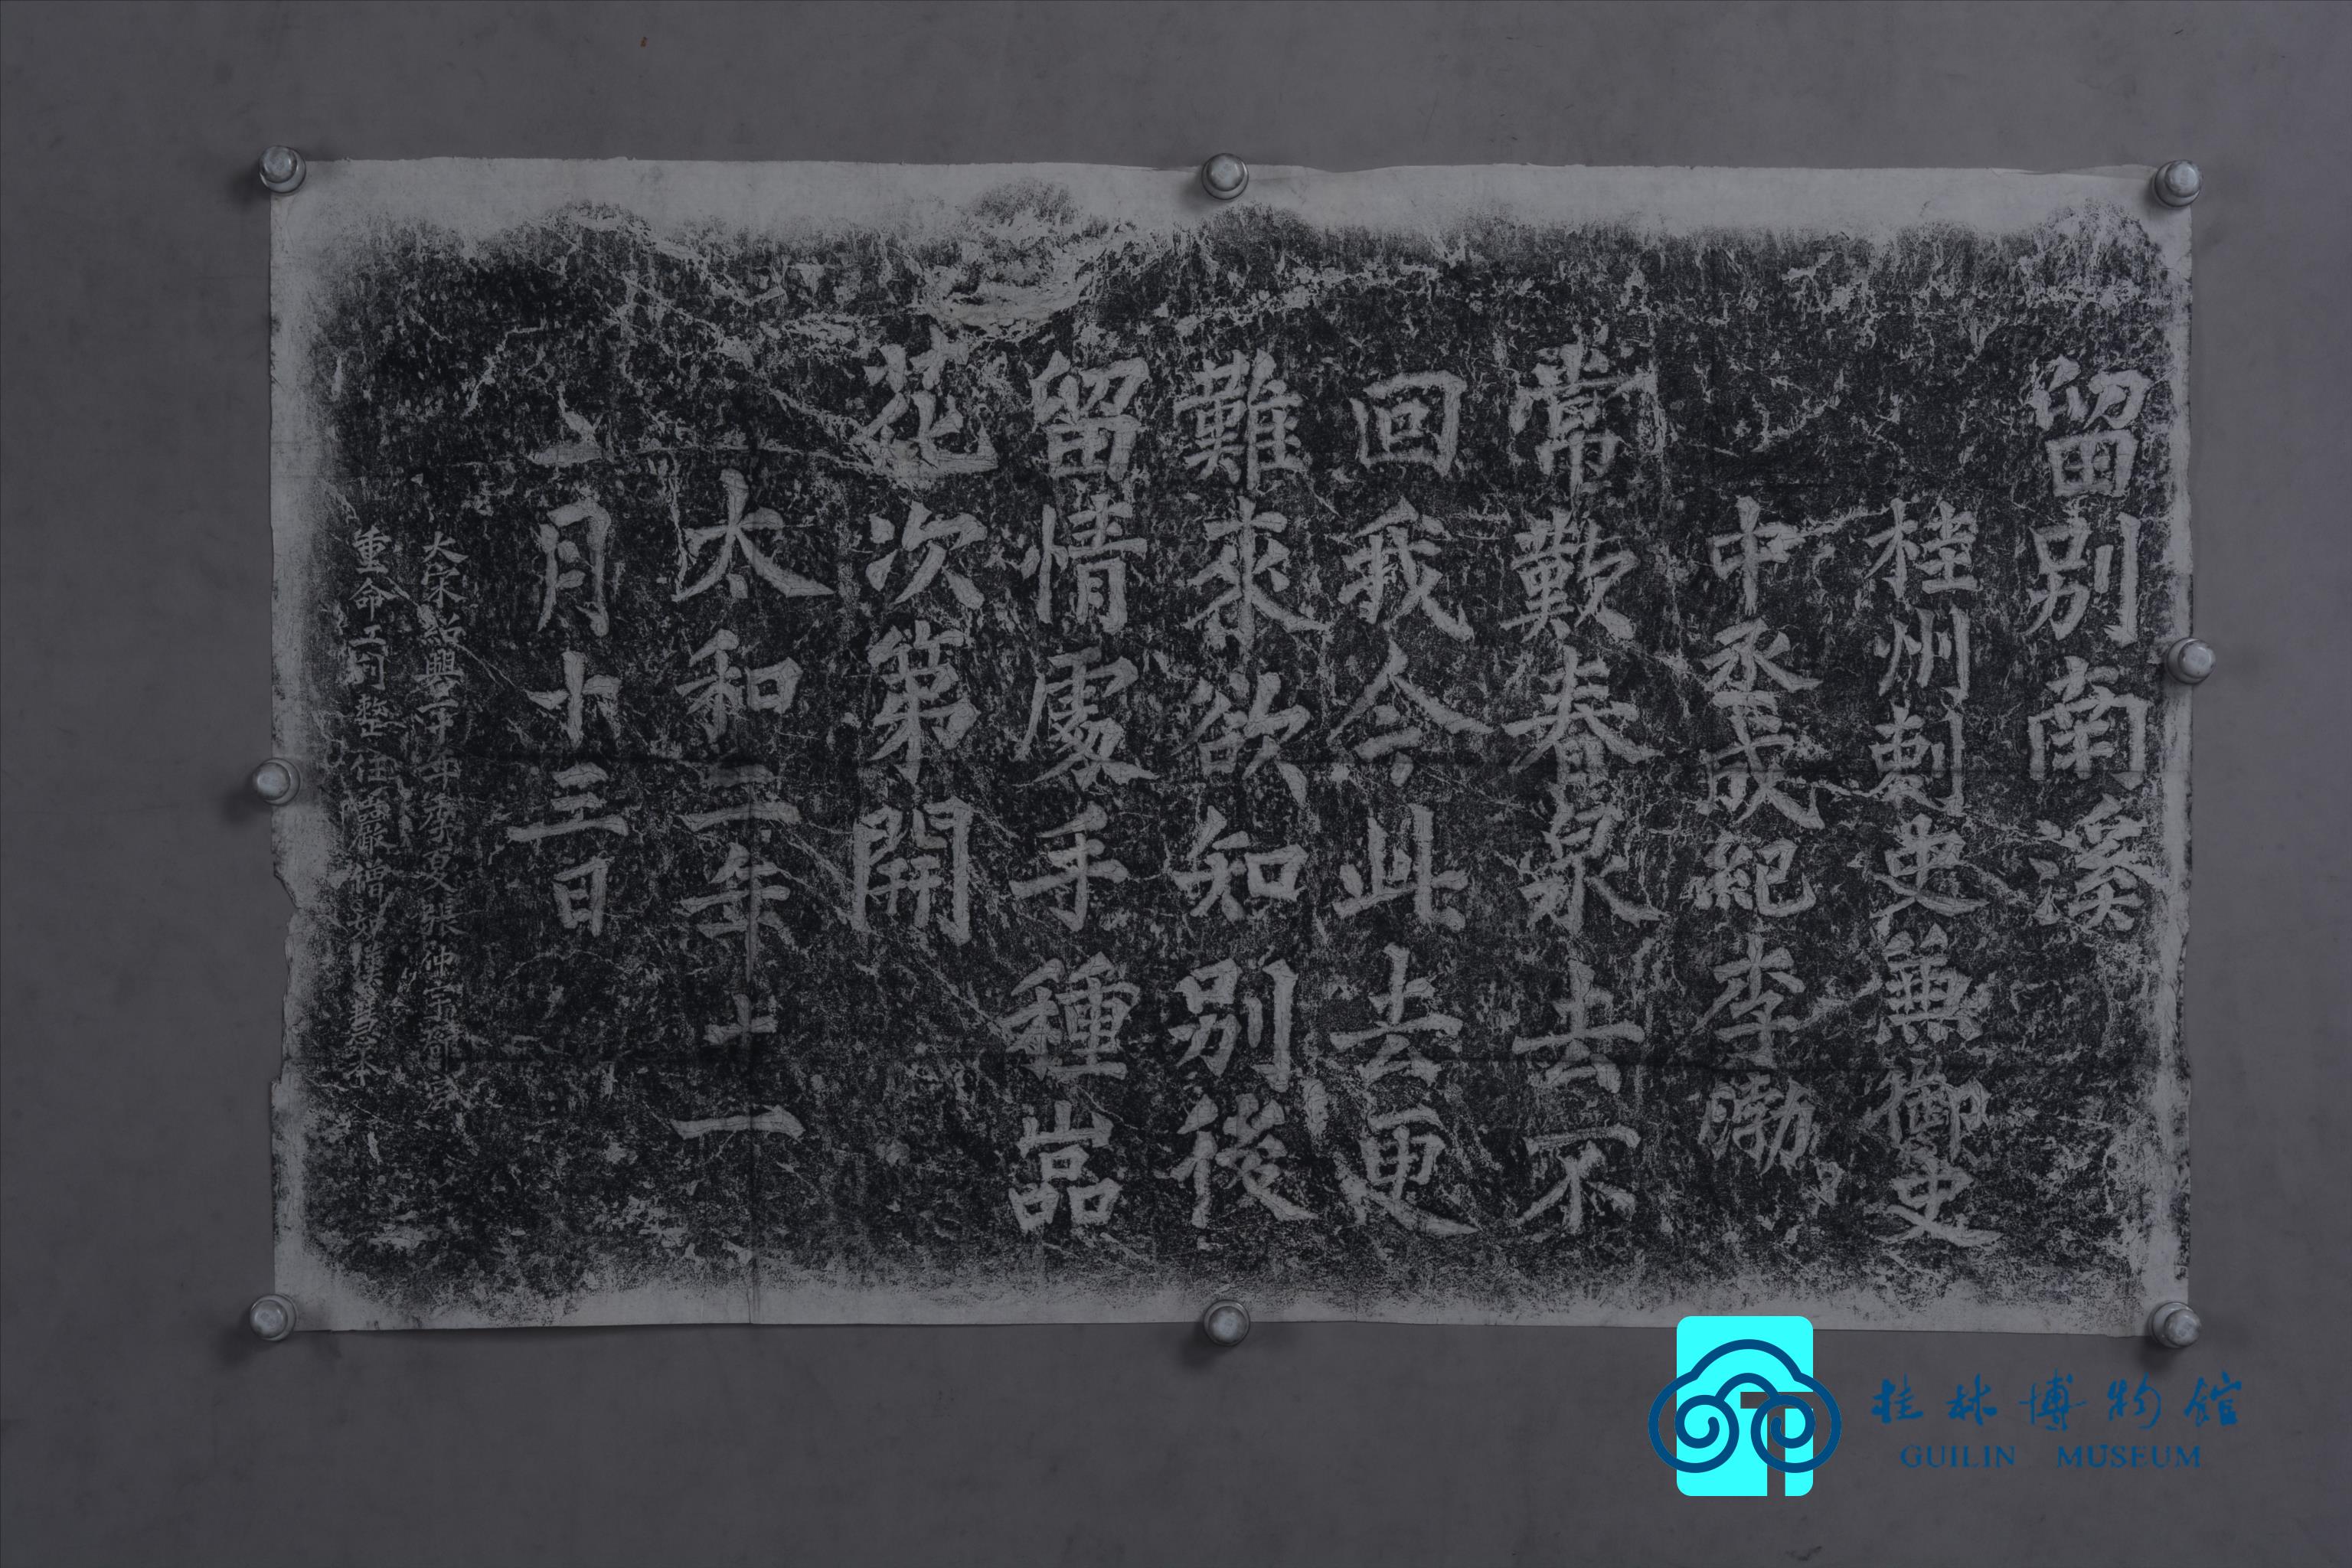 留別南溪
桂州刺史兼御史
中丞成紀李渤
常歎春泉去不
回我今此去更
難來欲知別後
留情處手種嵓
花次第開
太和二年十一
月十三日
大宋紹興二十年季夏張仲宇部□
重命工刊整住嵓嚴僧
桂林博物館
GUILIN MUSEUM